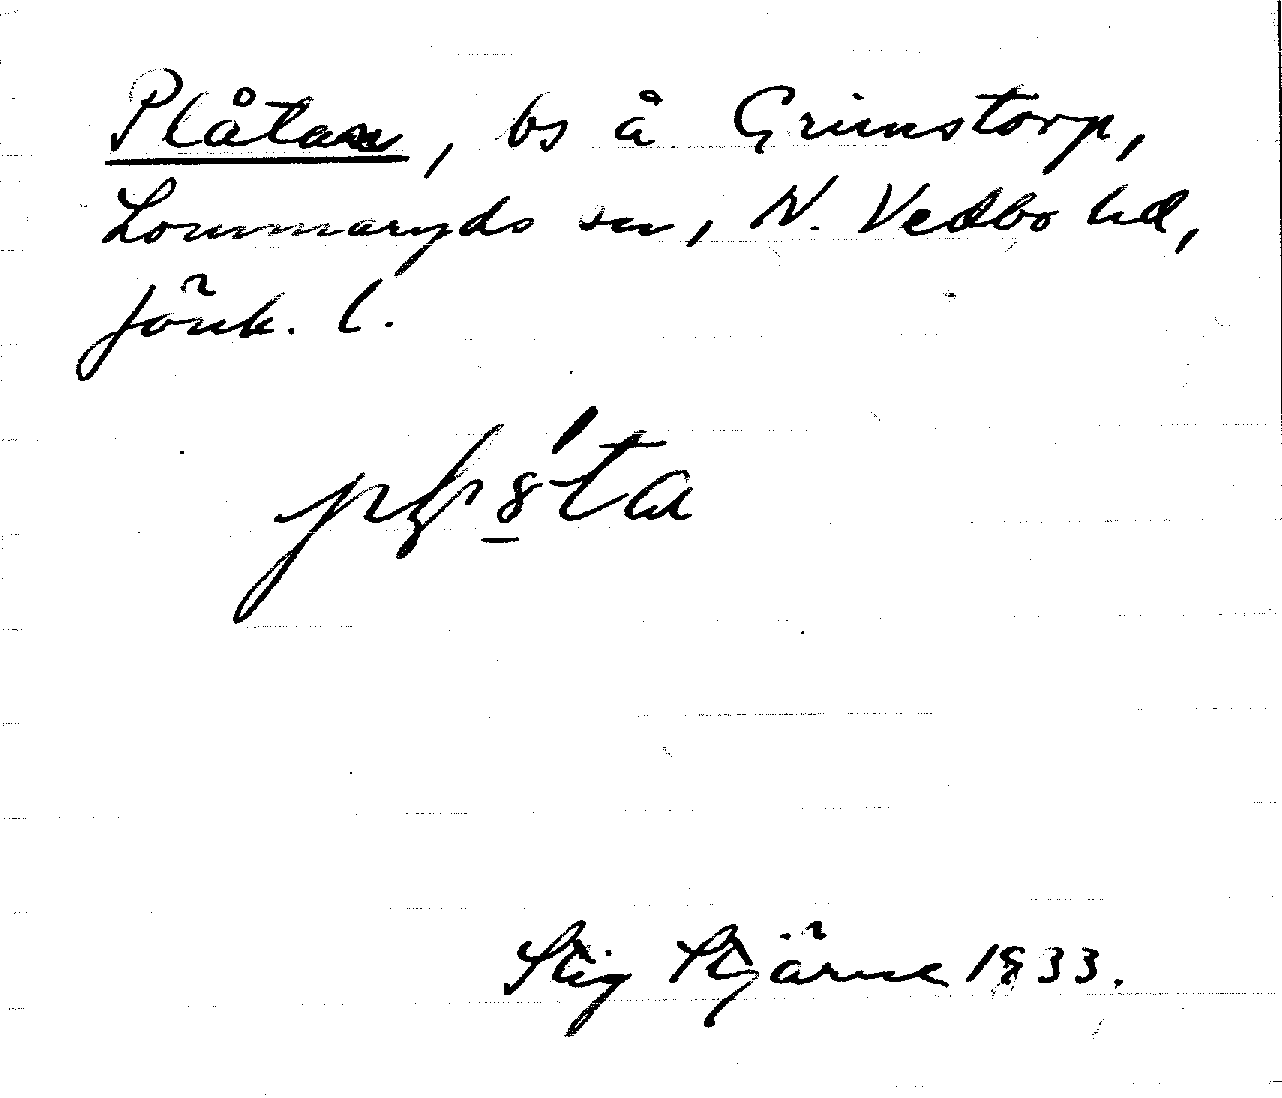 Plåtan, bs å Grimstorp,
Lommaryds sn, N. Vedbo hd,
Jönk. l.
Stig Stjärne 1933.